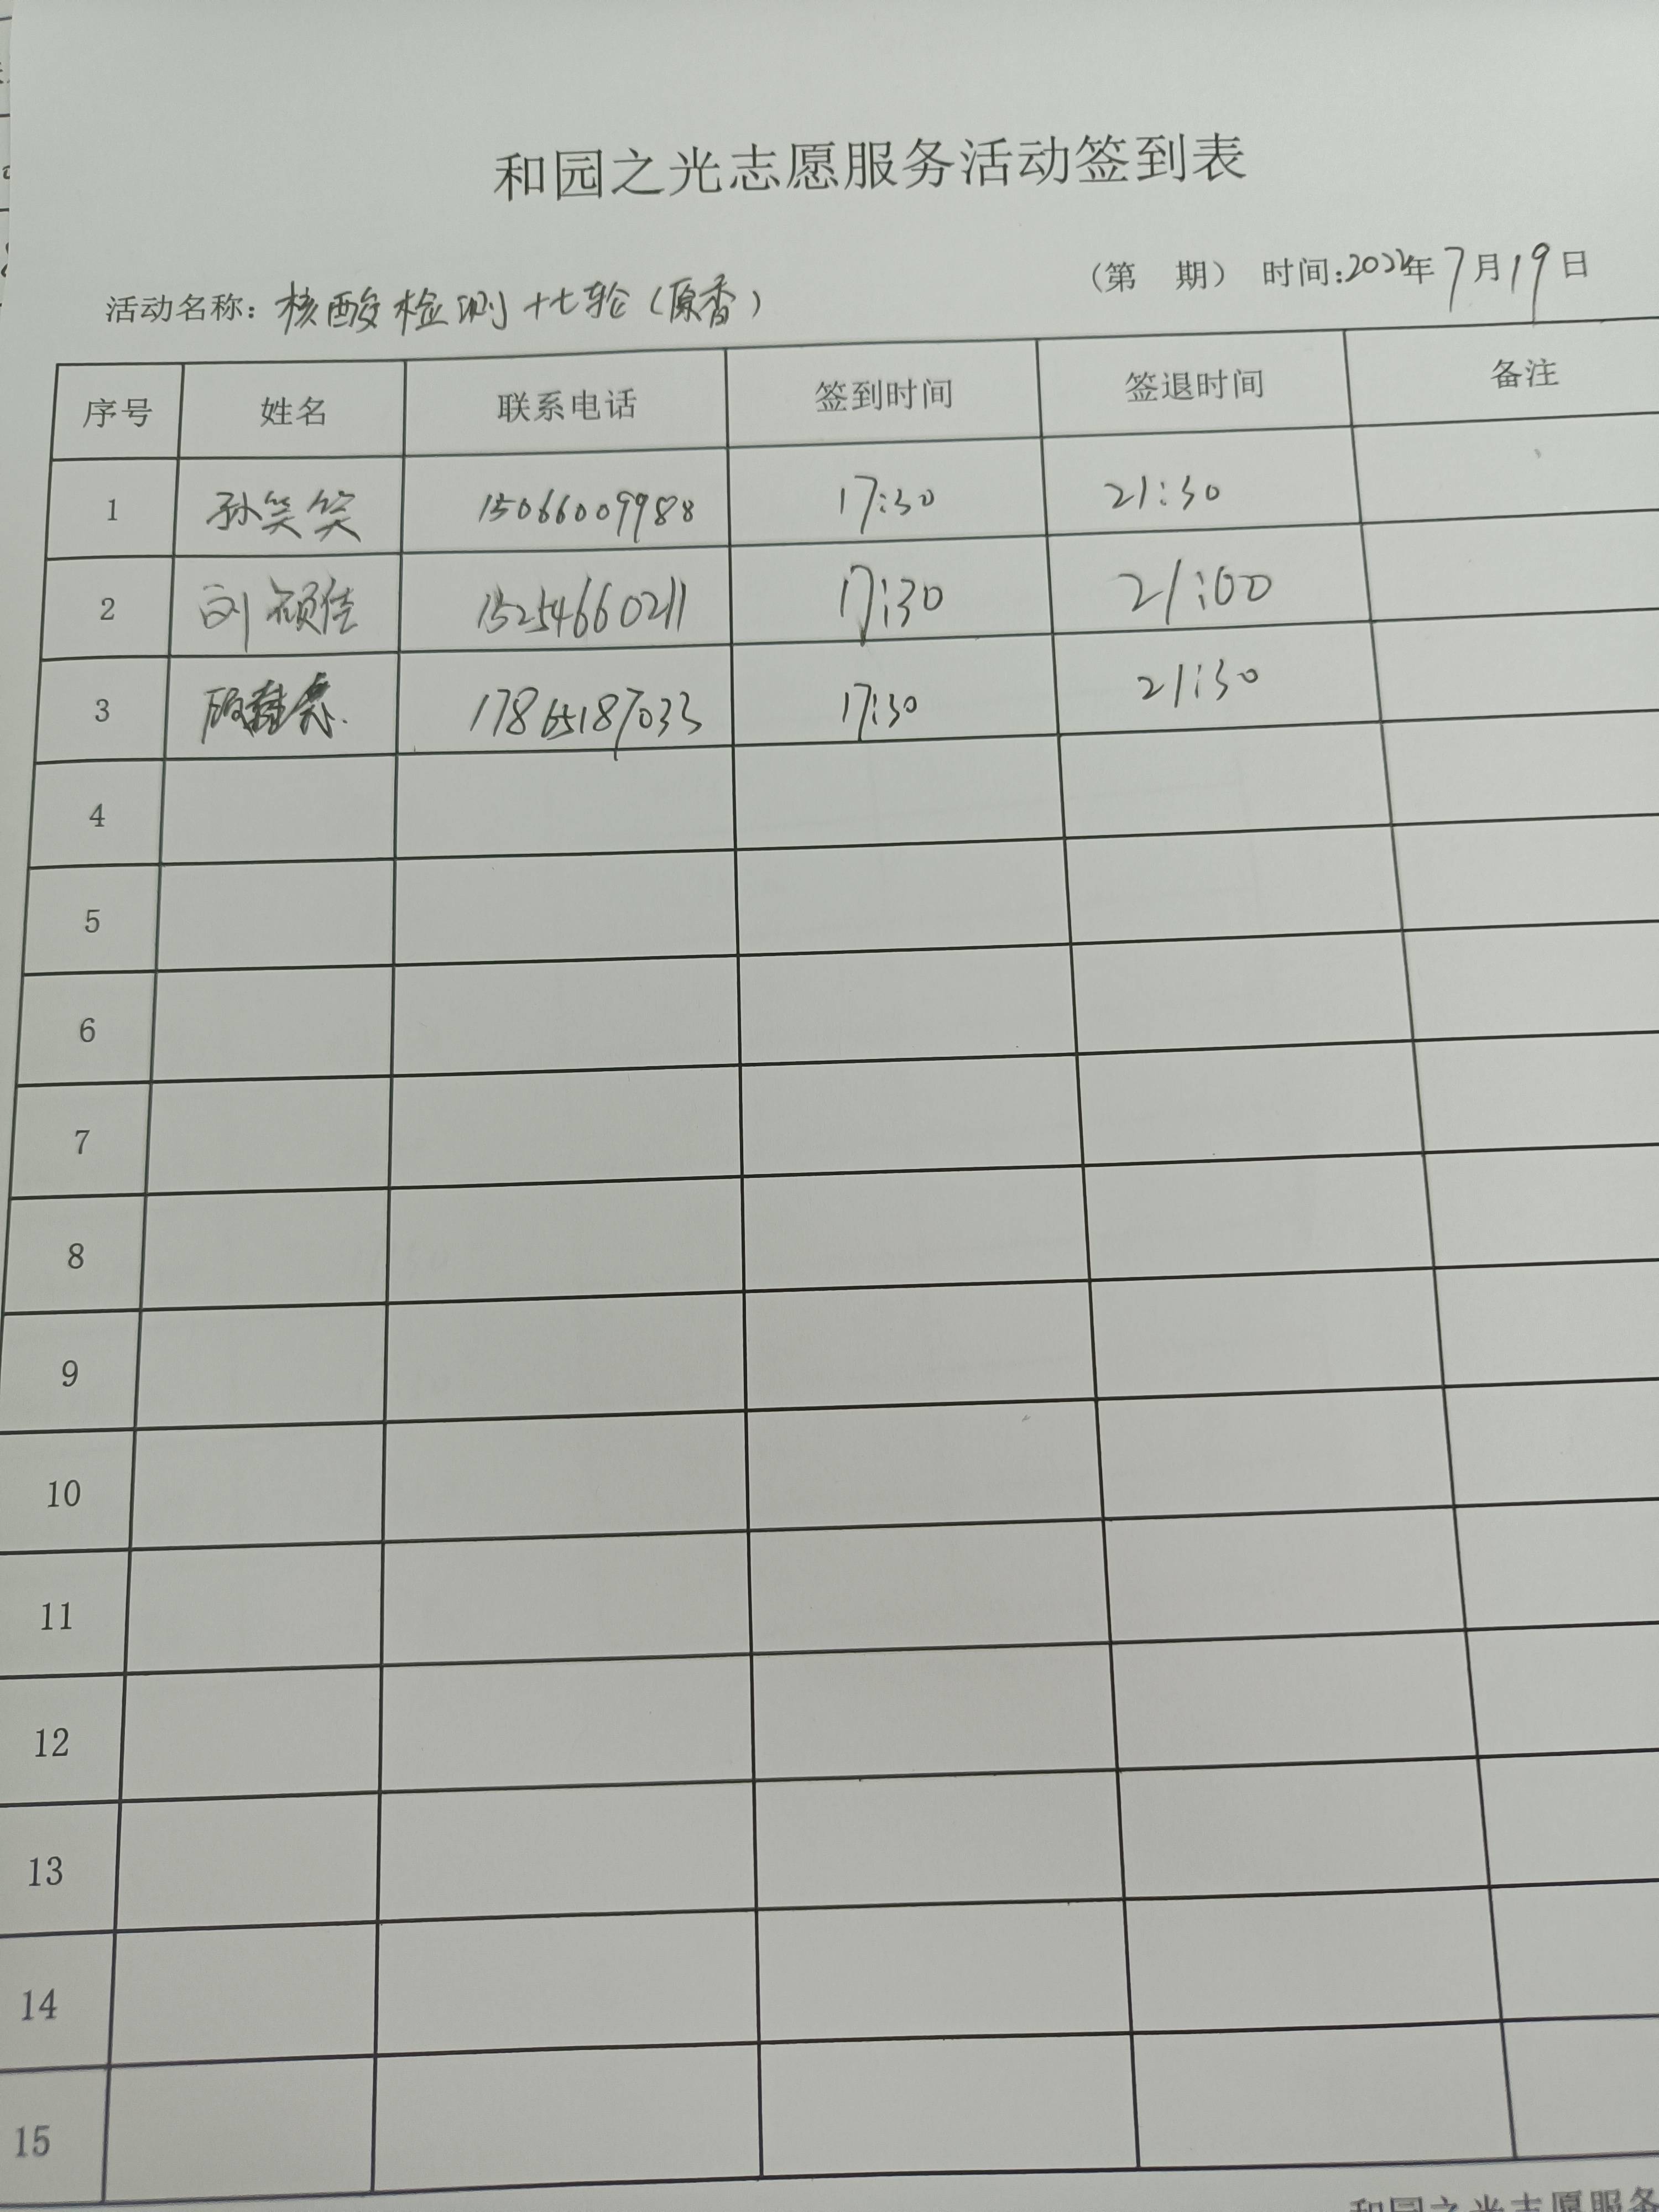 和园之光志愿服务活动签到表
(第 期) 时间:2022年7月19日
活动名称: 核酸检测十七轮(原香)
序号 姓名 联系电话 签到时间 签退时间 备注
1 孙笑笑 15066009988 17:30 21:30
2 刘硕佳 15254660211 17:30 21:00
3 17865187033 17:30 21:30
4
5
6
7
8
9
10
11
12
13
14
15
和园之光志愿服务